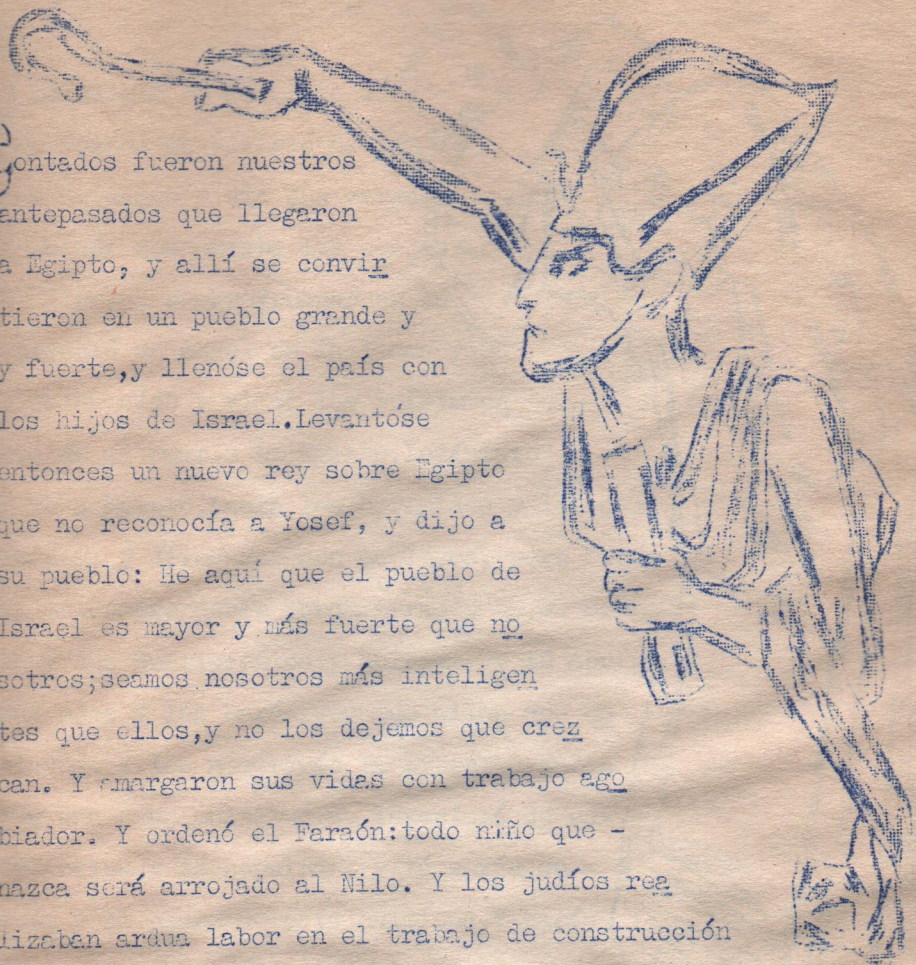 Contados fueron nuestros
antepasados que llegaron
a Egipto, y allí se convir
tieron en un pueblo grande y
y fuerte,y llenóse el país con
los hijos de Israel.Levantóse
entonces un nuevo rey sobre Egipto
que no reconocía a Yosef, y dijo a
su pueblo: He aquí que el pueblo de
Israel es mayor y más fuerte que no
sotros;seamos nosotros más inteligen
tes que ellos,y no los dejemos que crez
can. Y amargaron sus vidas con trabajo ago
biador. Y ordenó el Faraón:todo niño que -
nazca será arrojado al Nilo. Y los judíos rea
lizaban ardua labor en el trabajo de construcción